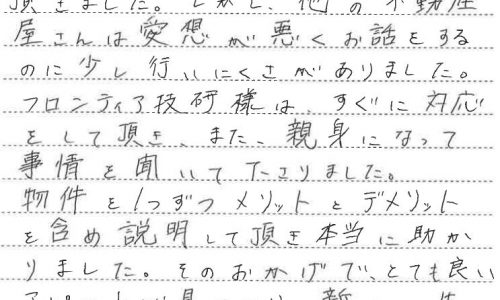 頂きました。しかし、他の不動産
屋さんは愛想が悪くお話をする
のに少し行いにくさがありました。
フロンティア技研様は、すぐに対応
をして頂き、また、親身になって
事情を聞いて下さりました。
物件を1つずつメリットとデメリット
を含め説明して頂き本当に助か
りました。そのおかげで、とても良い